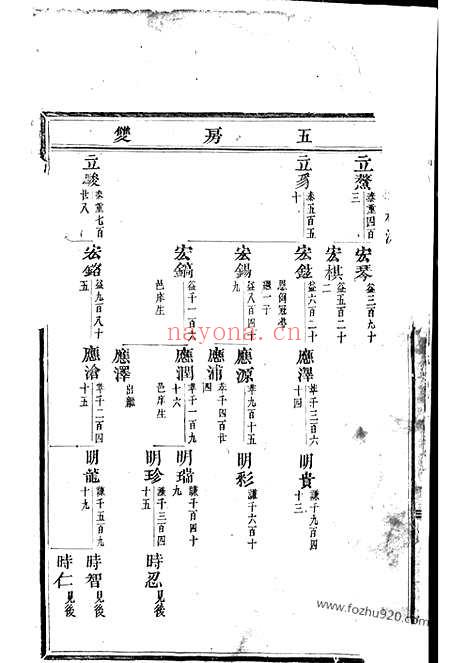 五房雙
立鰲 泰重四百三
立爵 泰五百五十
立駿 泰重七百廿八
宏琴 益三百九十
宏棋 益五百二十二
宏鎰 益六百二十 恩例冠帶
宏錫 益八百四十九 繼一子
宏鎬 益千一百 邑庠生
宏鉻 益九百八十五
應澤 萃千三百六十四
應源 萃九百十五
應浦 萃千四百廿四
應潤 萃千一百九十六 邑庠生
應澤 出繼
應滄 萃千二百四十五
明貴 謙千九百四十三
明彩 謙千六百十
明瑞 謙千百四十九
明珍 謙千三百四十五
明龍 謙千五百九十九
時忍 見後
時智 見後
時仁 見後
nayona.cn
www.fozhu920.com